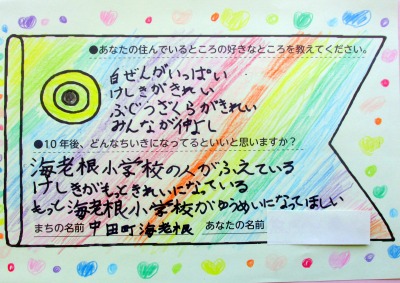 ●あなたの住んでいるところの好きなところを教えてください。
自ぜんがいっぱい
けしきがきれい
ふじつざくらがきれい
みんなが仲よし
●10年後、どんなちいきになってるといいと思いますか？
海老根小学校の人がふえている
けしきがもっときれいになっている
もっと海老根小学校がゆうめいになってほしい
まちの名前 中田町海老根 あなたの名前